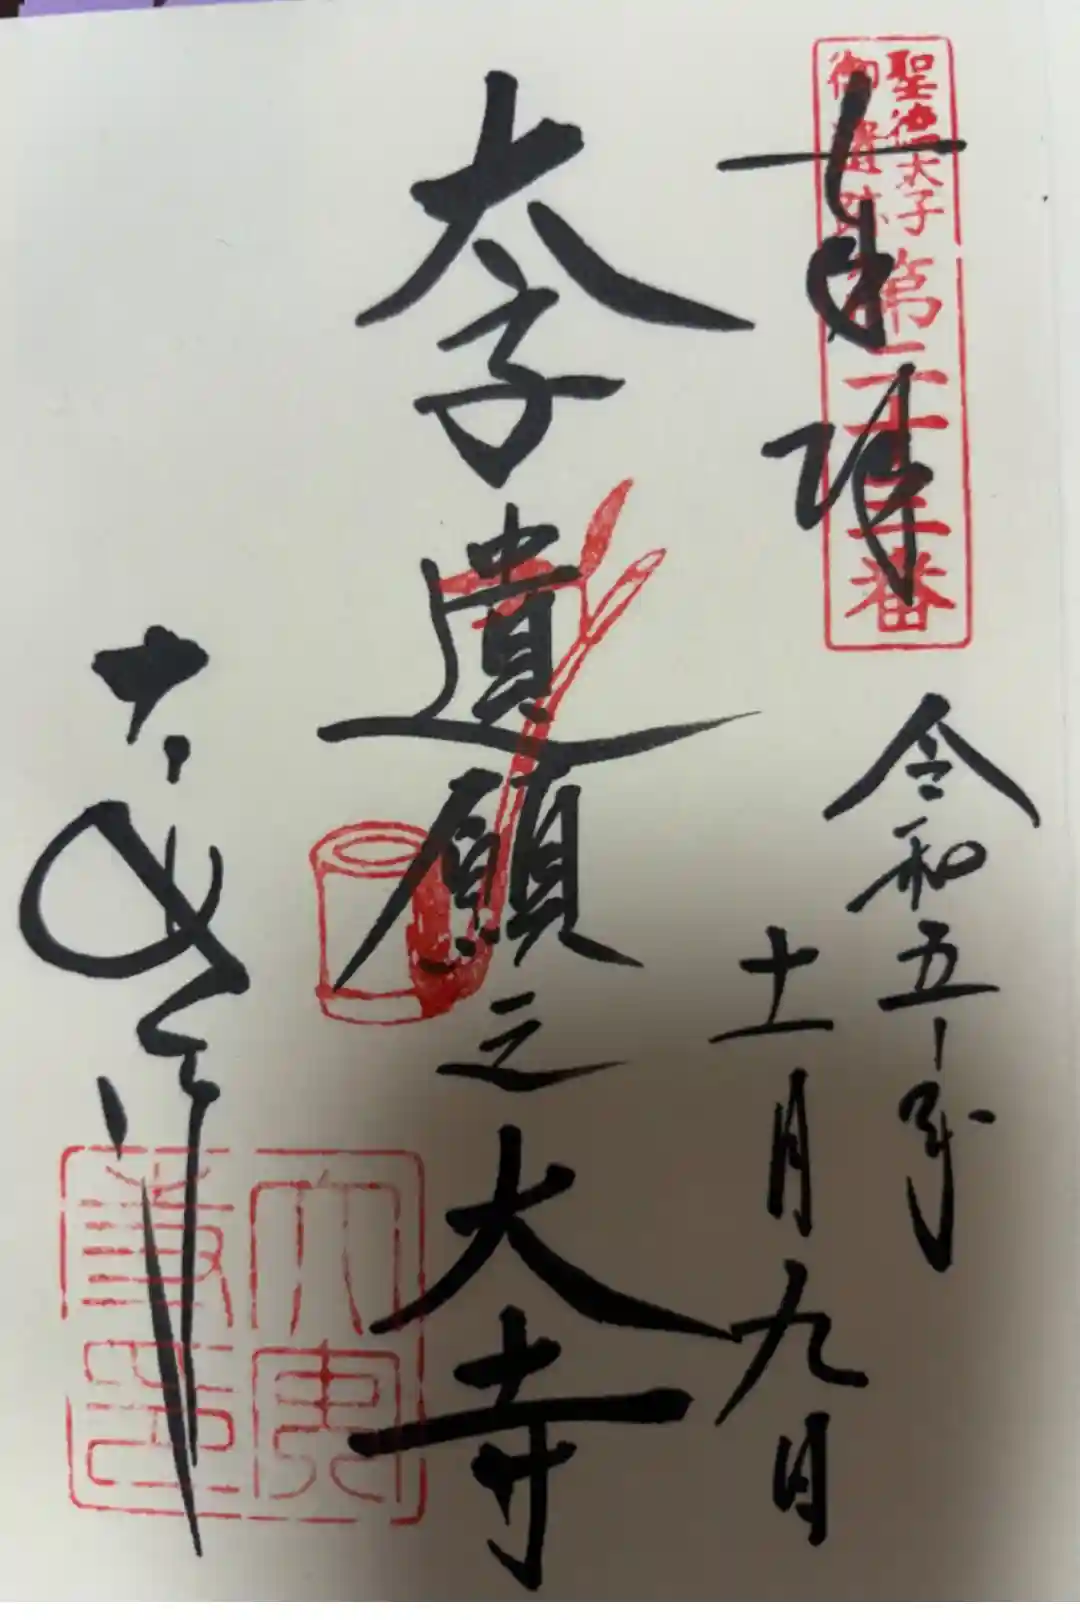 奉拝
聖徳太子
御遺跡
第二十三番
令和五年
十一月九日
太子遺願之大寺
大安寺